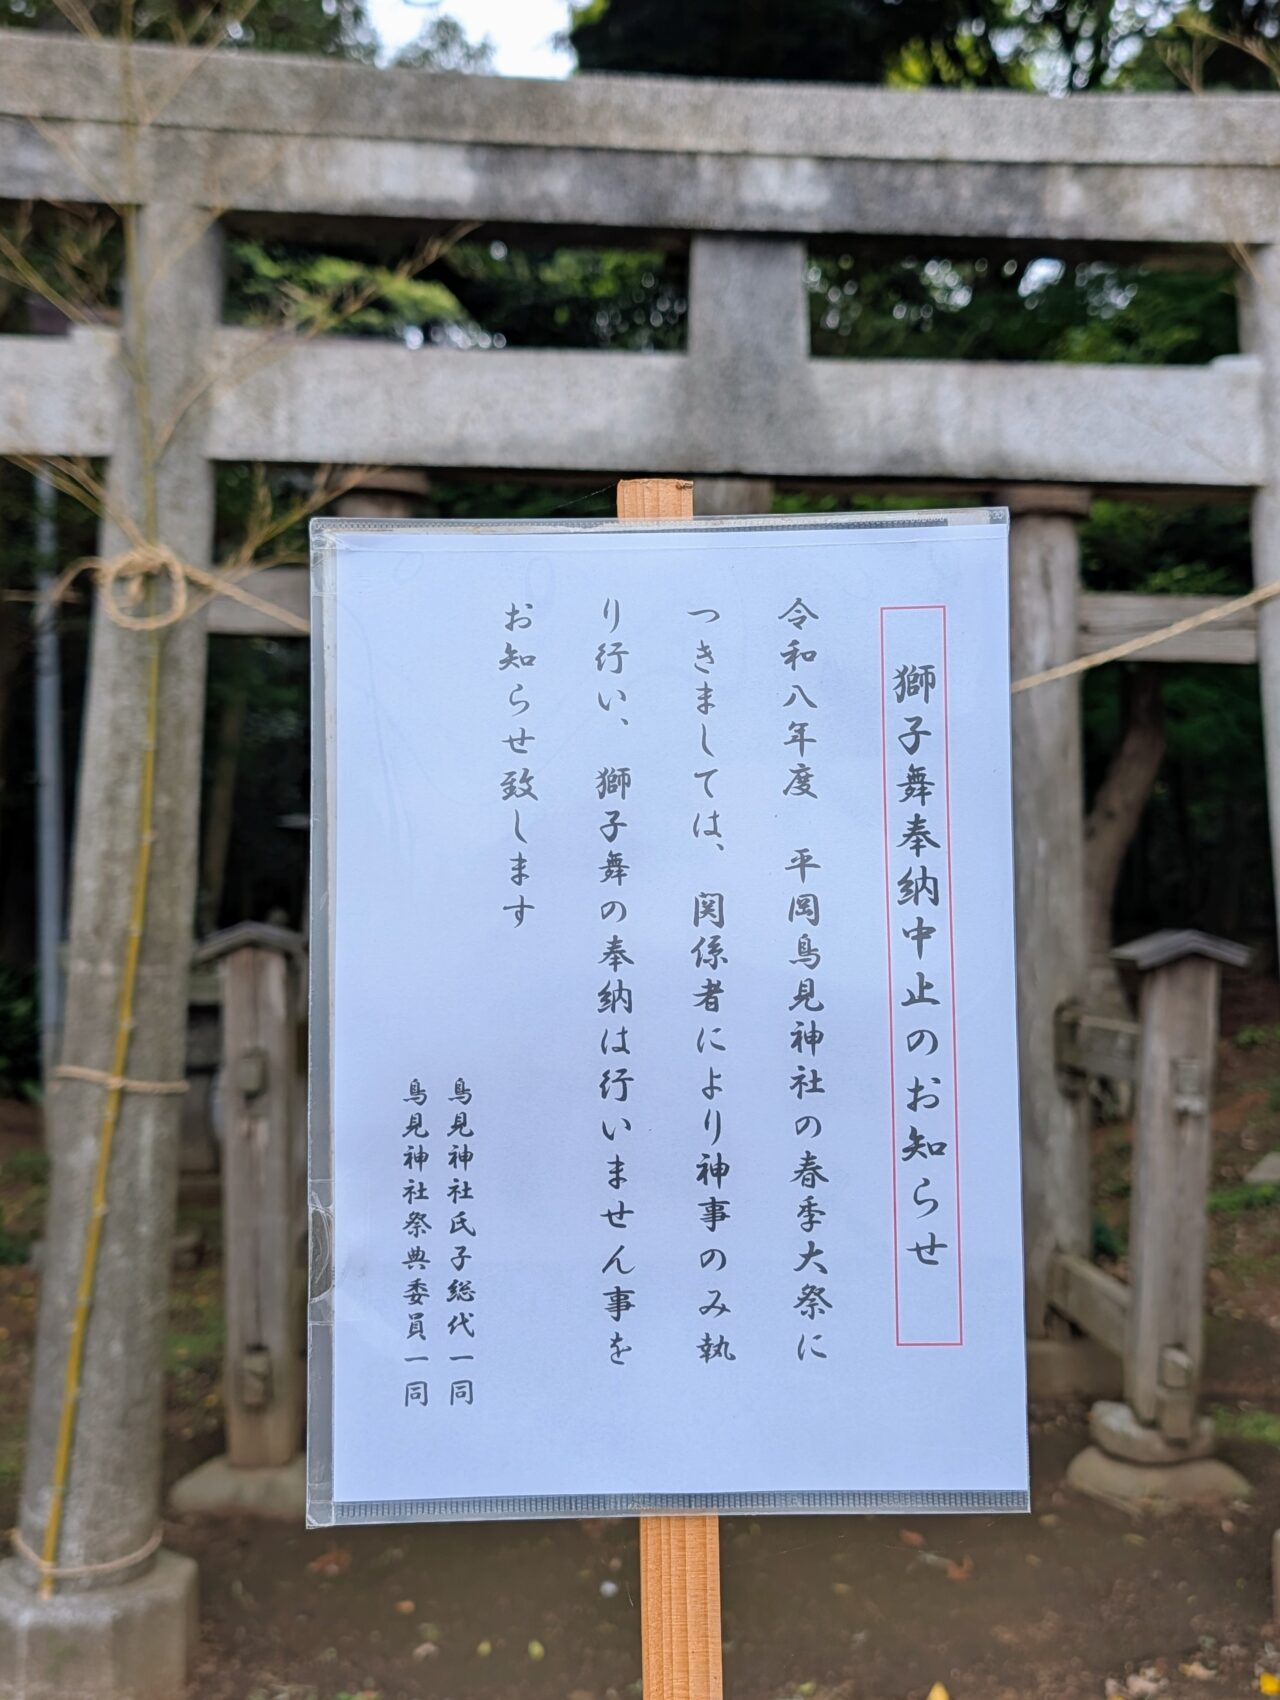 獅子舞奉納中止のお知らせ
令和八年度　平岡鳥見神社の春季大祭に
つきましては、関係者により神事のみ執
り行い、獅子舞の奉納は行いません事を
お知らせ致します
鳥見神社氏子総代一同
鳥見神社祭典委員一同